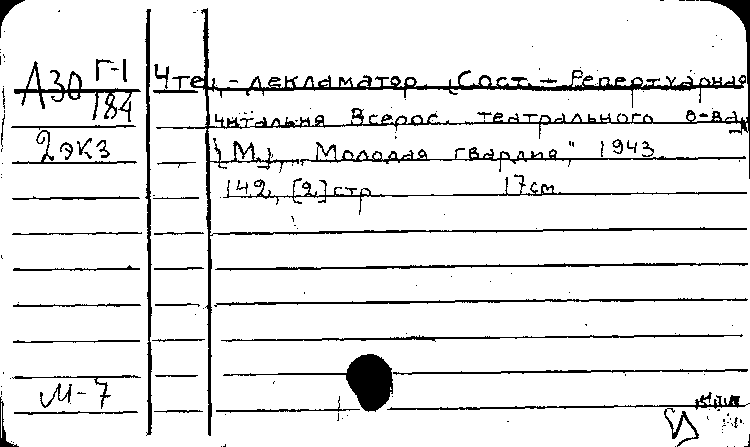 А30 Г-1 Чтец-декламатор. [Сост. - Репертуарная
184 читальня Всерос. театрального о-ва]
2экз [М.], "Молодая гвардия," 1943.
142, [2] стр. 17см.
М-7